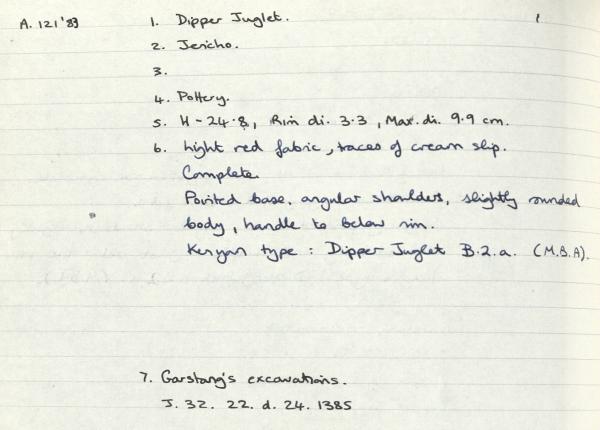 A. 121'83 1. Dipper Juglet. 1
2. Jericho.
3.
4. Pottery.
5. H - 24.8, Rim di. 3.3, Max. di. 9.9 cm.
6. Light red fabric, traces of cream slip.
Complete.
Pointed base, angular shoulders, slightly rounded
body, handle to below rim.
Kenyon type : Dipper Juglet B.2.a. (M.B.A).
7. Garstang's excavations.
J. 32. 22. d. 24. 1385